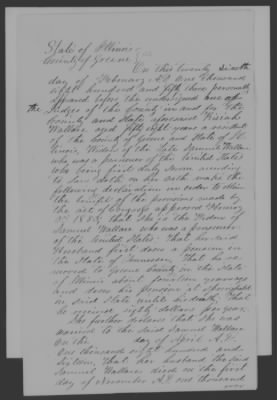 State of Illinois
County of Greene
On this twenty sixth
day of February A.D. One thousand
eight hundred and fifty three personally
appeared before the undersigned one of
the Judges of the County in and for the
County and State aforesaid Keziah
Wallace, aged fifty eight years a resident
of the County of Greene and State of Il-
linois. Widow of the Late Samuel Wallace
who was a pensioner of the United States
who being first duly sworn according
to law doth on her oath make the
following declaration in order to obtain
the benefit of the provisions made by
the act of Congress approved February
3d 1853, that She is the Widow of
Samuel Wallace who was a pensioner
of the United States. That her said
Husband first drew a pension in
the State of Tennessee, That he re-
moved to Greene County in the State
of Illinois about fourteen years ago
and drew his pension at Springfield
in said State until his death, That
he received eighty dollars per year.
She further declares that She was
married to the said Samuel Wallace
On the day of April A.D.
One thousand eight hundred and
Sixteen, That her husband the said
Samuel Wallace died on the first
day of November A.D. one thousand